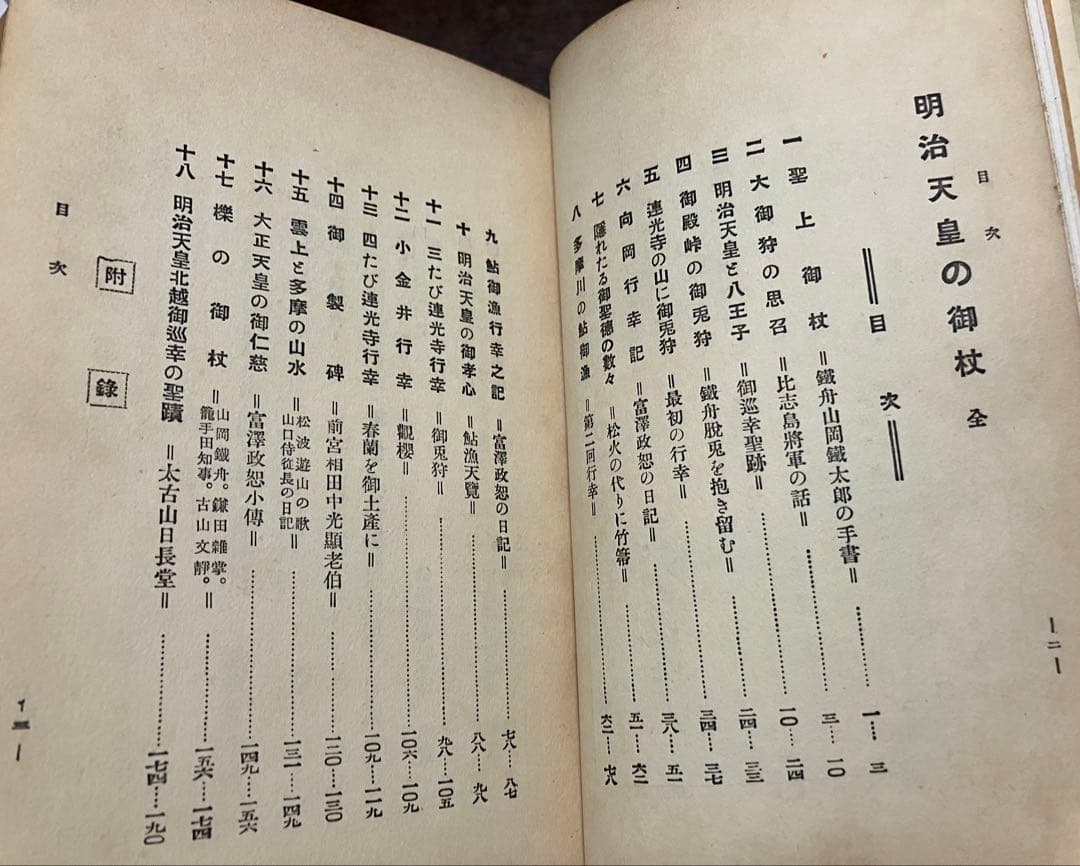 目次
―二―
明治天皇の御杖 全
=目次=
一 聖上御杖 =鐵舟山岡鐵太郎の手書=………一…三
二 大御狩の思召 =比志島將軍の話=………三…一〇
三 明治天皇と八王子 =御巡幸聖跡=………一〇…二四
四 御殿峠の御兎狩 =鐵舟脱兎を抱き留む=………二四…三三
五 連光寺の山に御兎狩 =最初の行幸=………三四…三七
六 向岡行幸記 =富澤政恕の日記=………三八…五一
七 隱れたる御聖德の數々 =松火の代りに竹箒=………五一…六二
八 多摩川の鮎御漁 =第二回行幸=………六二…七八
九 鮎御漁行幸之記 =富澤政恕の日記=………七八…八七
十 明治天皇の御孝心 =鮎漁天覽=………八八…九八
十一 三たび連光寺行幸 =御兎狩=………九八…一〇五
十二 小金井行幸 =觀櫻=………一〇六…一〇九
十三 四たび連光寺行幸 =春蘭を御土產に=………一〇九…一一九
十四 御製碑 =前宮相田中光顯老伯=………一二〇…一三〇
十五 雲上と多摩の山水 =松波遊山の歌
山口侍從長の日記=………一三一…一四九
十六 大正天皇の御仁慈 =富澤政恕小傳=………一四九…一五六
十七 櫟の御杖 =山岡鐵舟。鎌田雜掌。
籠手田知事。古山文靜。=………一五六…一七四
十八 明治天皇北越御巡幸の聖蹟 =太古山日長堂=………一七四…一九〇
附錄
目次
―三―